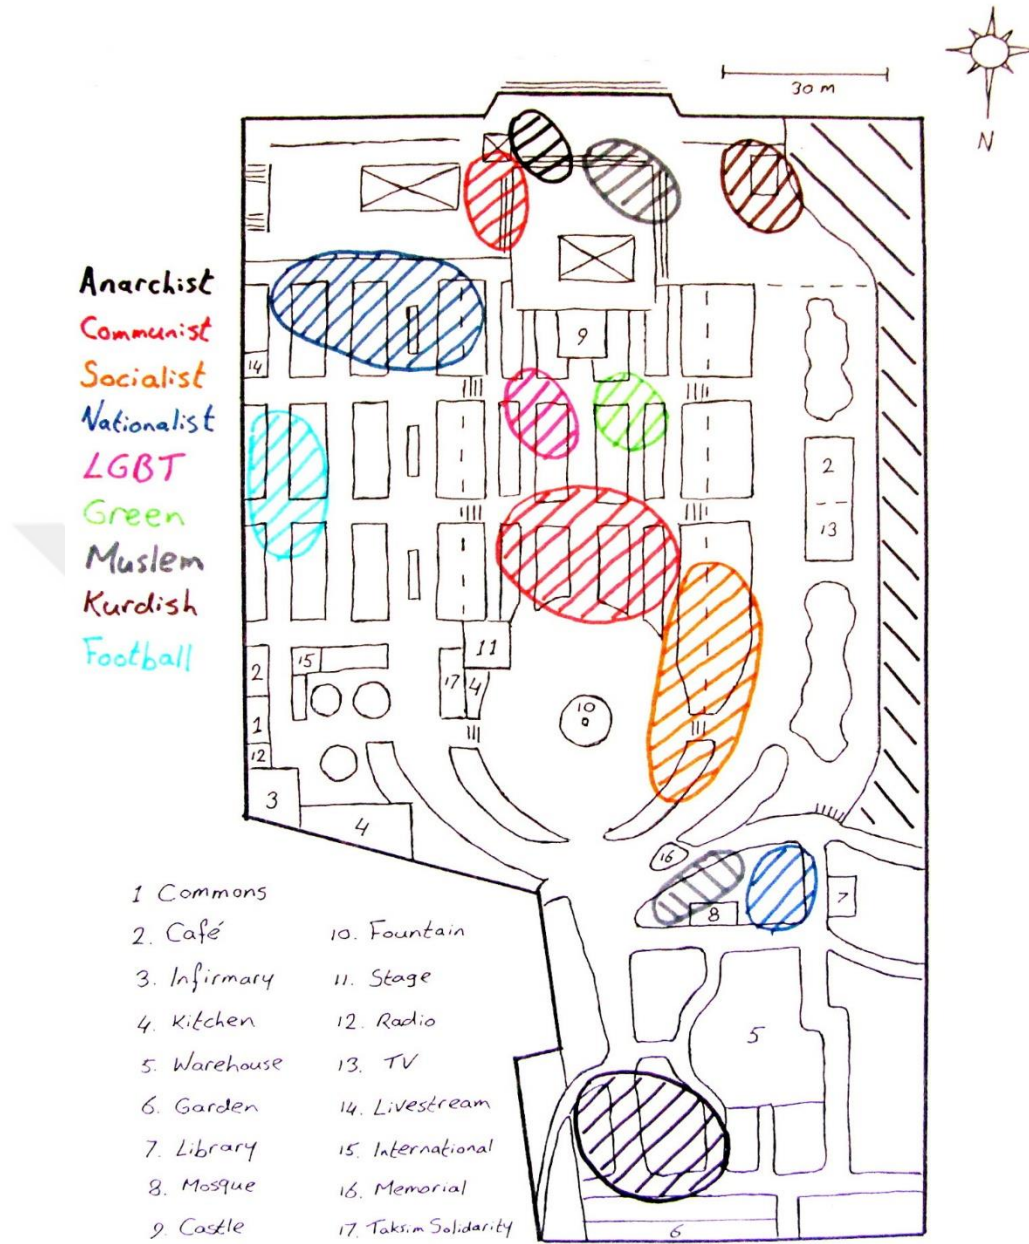 30 m
N
Anarchist
Communist
Socialist
Nationalist
LGBT
Green
Muslem
Kurdish
Football
9
14
2
13
11
15
17
4
2
10
1
12
3
4
16
8
7
5
6
1 Commons
2. Café
3. Infirmary
4. Kitchen
5. Warehouse
6. Garden
7. Library
8. Mosque
9. Castle
10. Fountain
11. Stage
12. Radio
13. TV
14. Livestream
15. International
16. Memorial
17. Taksim Solidarity